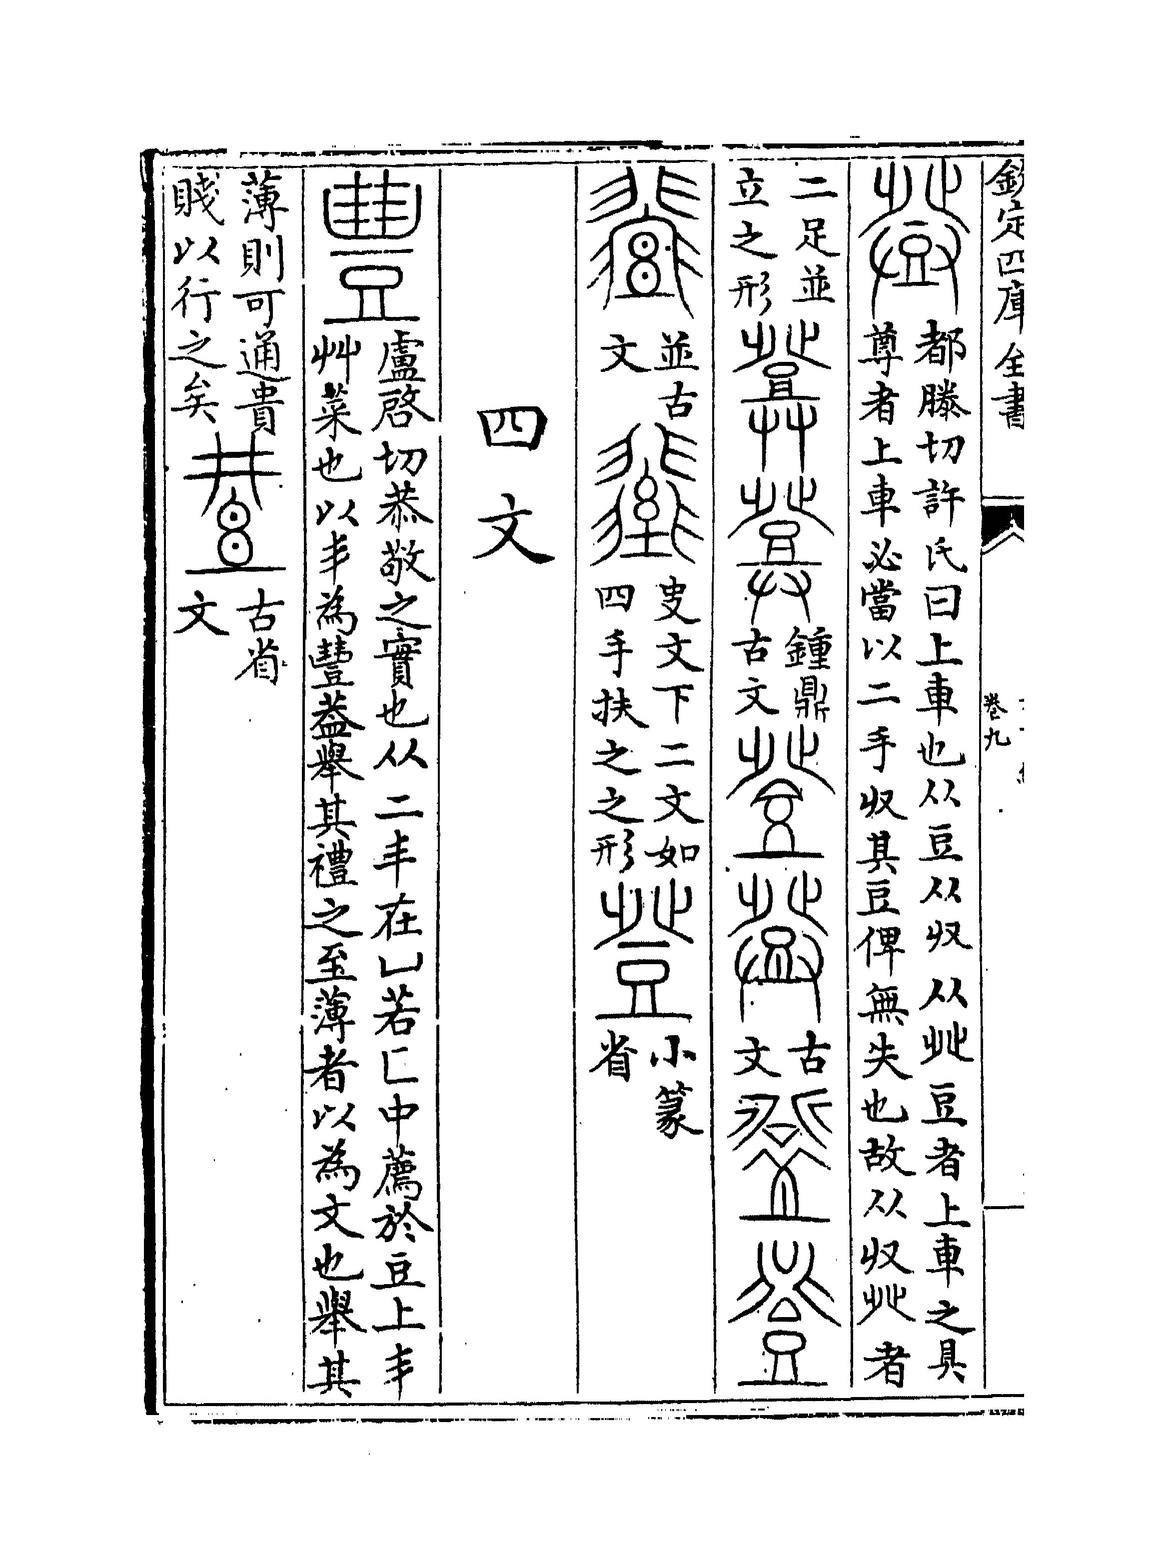 欽定四庫全書
卷九
都滕切許氏曰上車也从豆从収从癶豆者上車之具
尊者上車必當以二手収其豆俾無失也故从収癶者
二足並
立之形
鍾鼎
古文
古
文
並古
文
叓文下二文如
四手扶之之形
小篆
省
四文
盧啓切恭敬之實也从二丰在凵若匚中薦於豆上丰
艸菜也以丰為豐葢舉其禮之至薄者以為文也舉其
薄則可通貴
賤以行之矣
古省
文